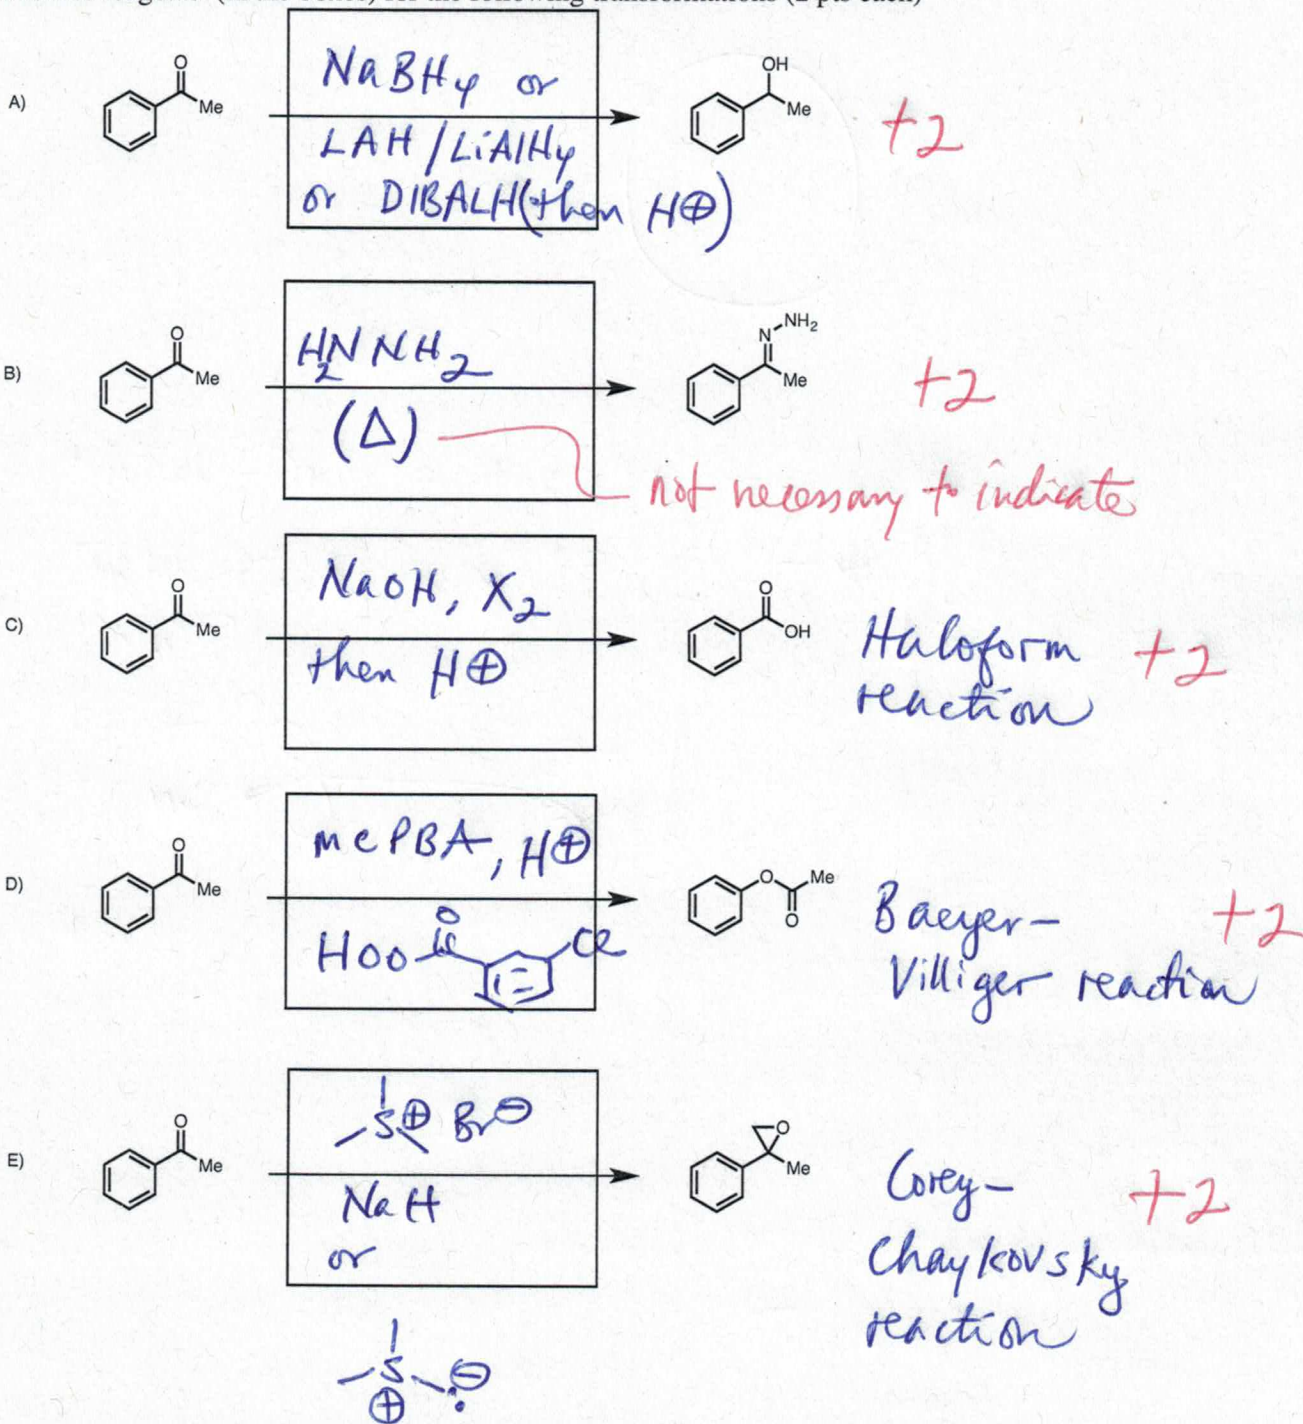 A)
O
Me
NaBH4 or
LAH / LiAlH4
or DIBALH (then H⊕)
OH
Me
+2
B)
O
Me
H2NNH2
(Δ)
N
NH2
Me
+2
not necessary to indicate
C)
O
Me
NaOH, X2
then H⊕
O
OH
Haloform
reaction
+2
D)
O
Me
mCPBA, H⊕
HOO
O
Cl
O
Me
O
Baeyer-
Villiger reaction
+2
E)
O
Me
S⊕ Br⊖
NaH
or
S
⊕
⊖
O
Me
Corey-
Chaykovsky
reaction
+2